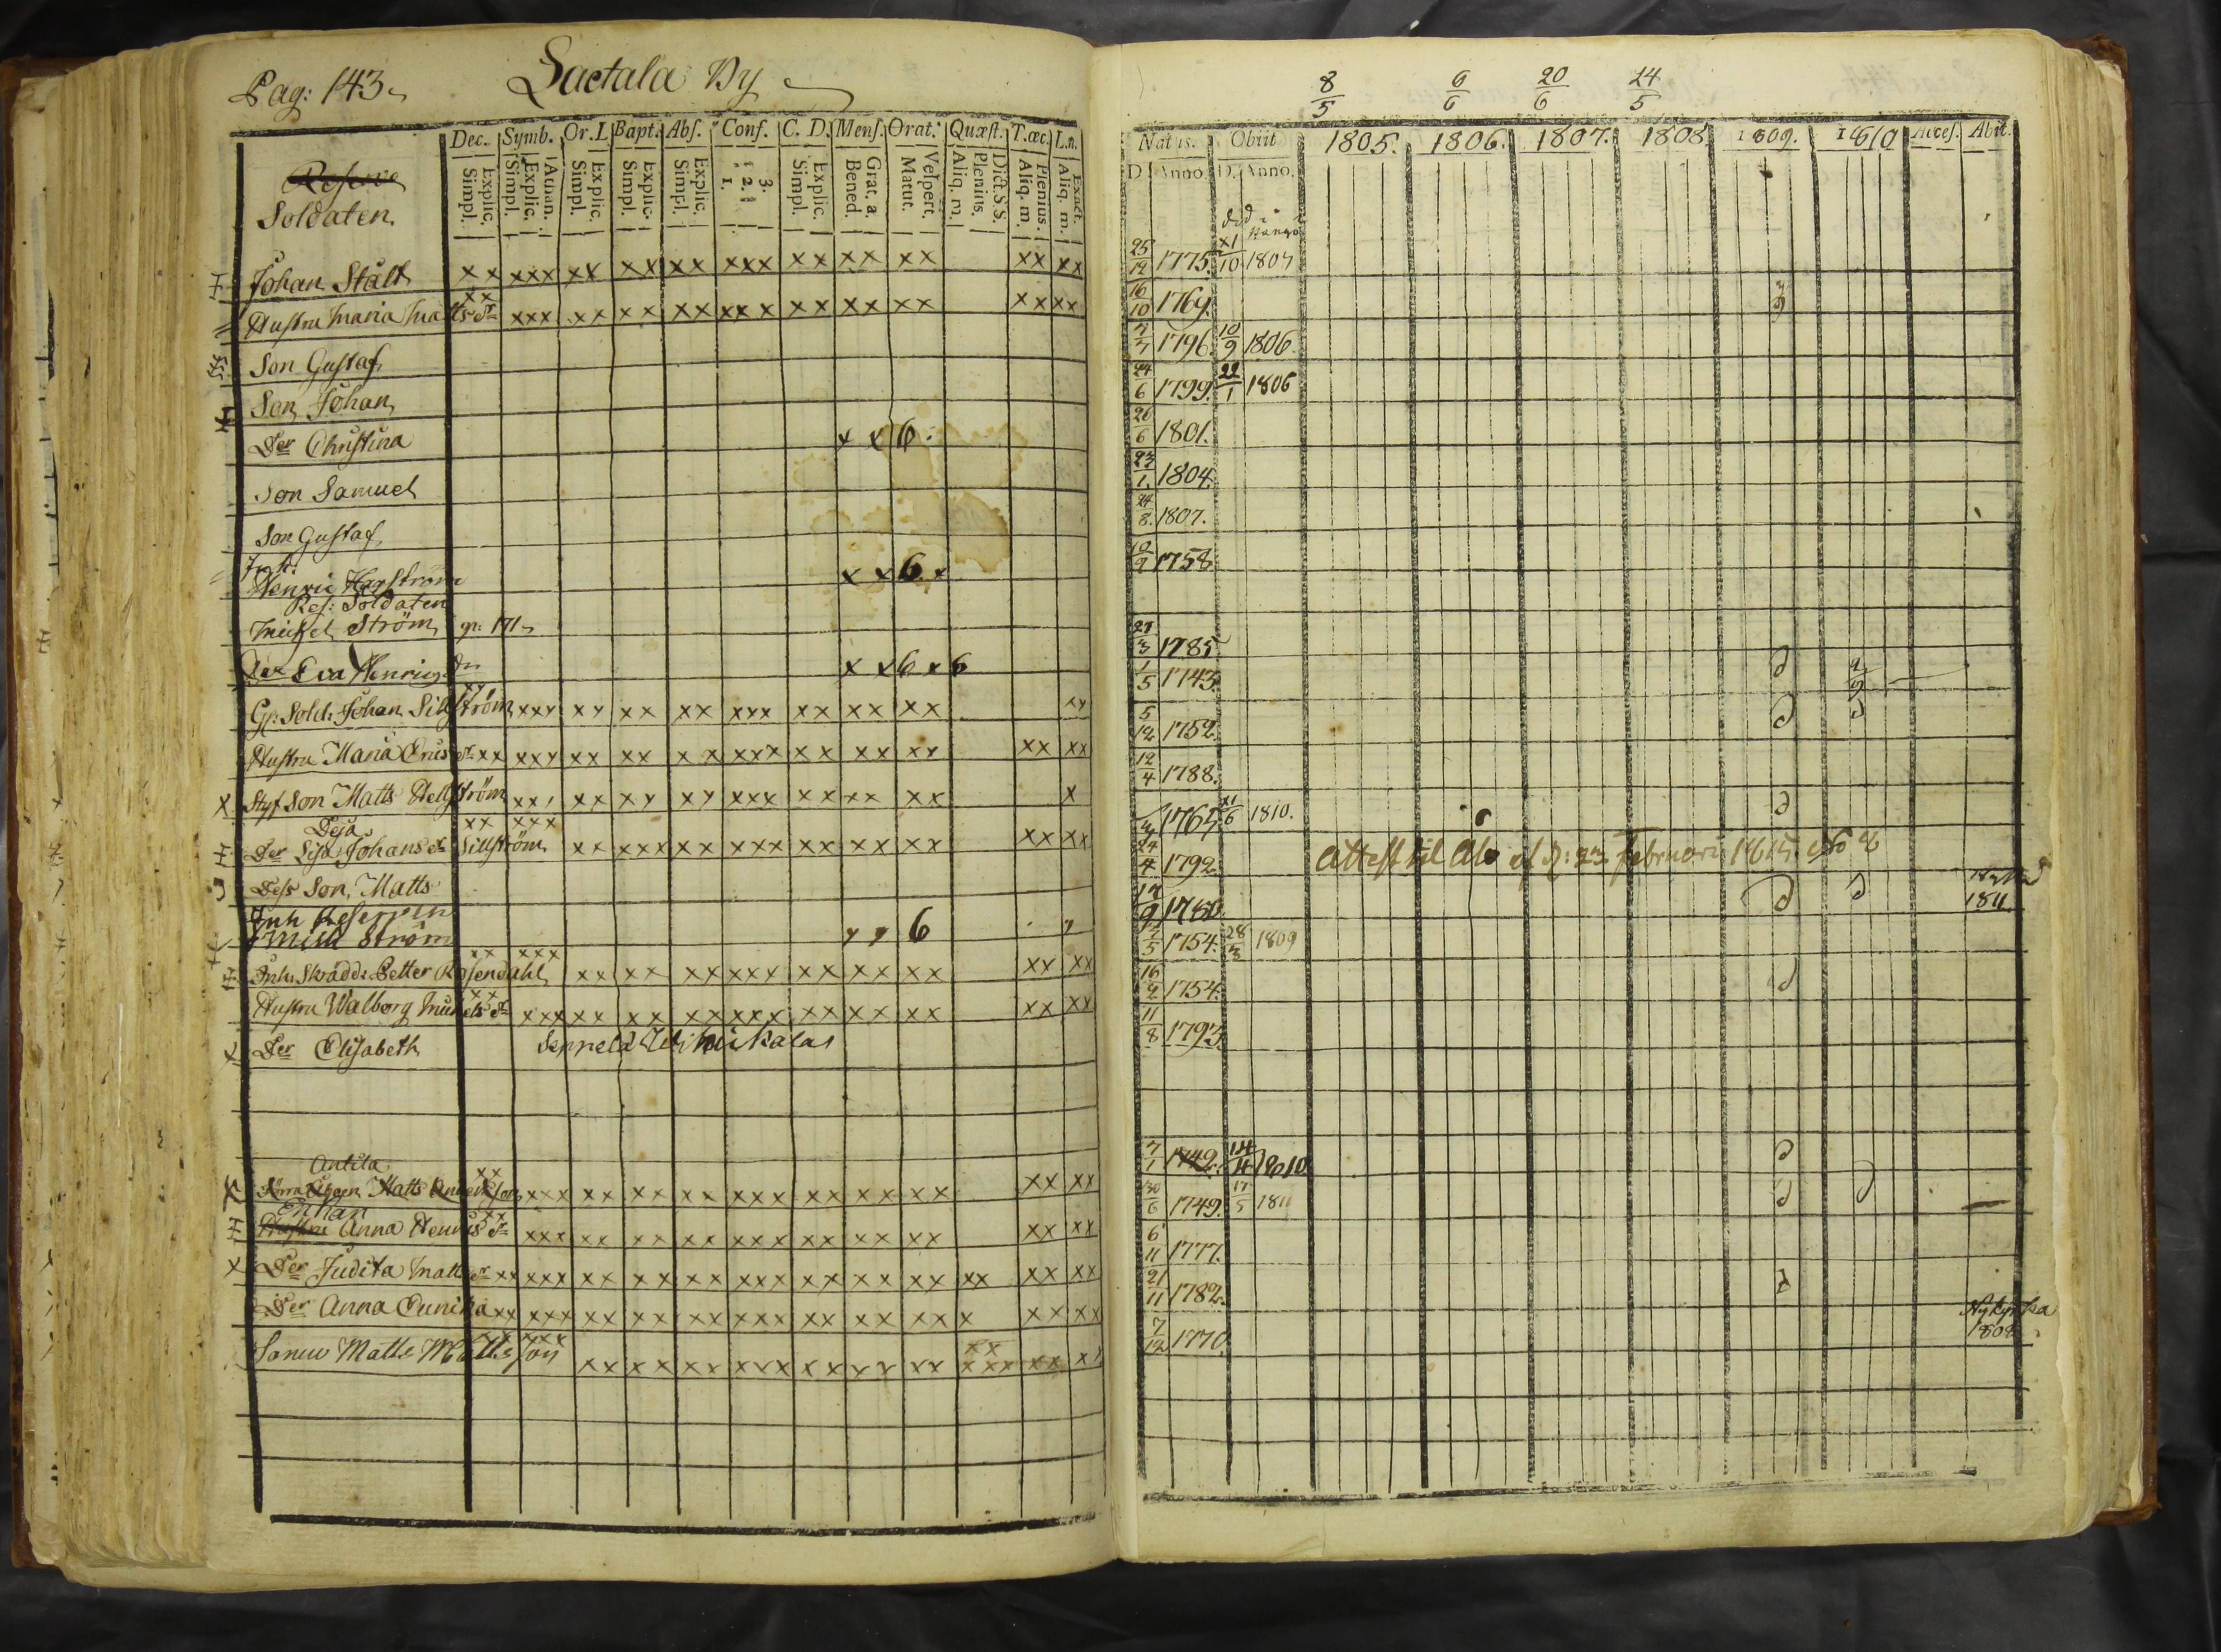 Pag: 143
Lactala By
Dec. Symb. Or. L Bapt. Abs. Conf. C. D. Mens. Orat. Quæst. T. œc. L.n.
Explic. Simpl. Athan. Explic. Simpl. Explic. Simpl. Explic. Simpl. Explic. Simpl. 3. 2. 1. Explic. Simpl. Grat. a. Bened. Vespert. Matut. Dict. S S. Plenius. Aliq. m. Plenius. Aliq. m. Exact. Aliq. m.
Reserve
Soldaten
Johan Stålt xx xxx xx xx xx xxx xx xx xx xx xx
Hustru Maria Matts dr xx xxx xx xx xx xx x xx xx xx xx xx
Son Gustaf
Son Johan
Der Christina x x 6.
Son Samuel
Son Gustaf
Henric Hagström x x 6 x
Res: Soldaten
Michel Ström, gr: 171
Der Eva Henrics dr x x 6 x 6
Gr: Sold: Johan Sillström xxx xx xx xx xxx xx xx xx xx
Hustru Maria Erics dr xx xxx xx xx x x xxx xx xx xx xx xx
Styf Son Matts Hellström xx xx xx xx xxx xx xx xx x
Deja
xx xxx
Der Lisa Johans dr Sillström xx xxx xx xxx xx xx xx xx xx
Dess Son, Matts
Inh Reserven
Ström 6
xx xxx
Inh: Skrädd: Petter Rosendahl xx xx xx xxx xx xx xx xx xx
Hustru Walborg Michels dr xx xxx xx xx xx xxx xx xx xx xx xx
Der Elisabeth
Antila
Matts Anders son xx xxx xx xx xx xxx xx xx xx xx xx
Enkan
Hustru Anna Henrics dr xx xxx xx xx xx xxx xx xx xx xx xx
Der Judita Matts dr xx xxx xx xx xx xxx xx xx xx xx xx xx
Der Anna Eunika xx xxx xx xx xx xxx xx xx xx x x xx xx
Matts Matts son xx xxx xx xx xx xxx xx xx xx xx xxx xx xx
8/5 6/6 20/6 24/5
Natus. Obiit 1805. 1806. 1807. 1808. 1809. 1810 Acces. Abit.
D. Anno. D. Anno.
25/12 1775. /10 1807
16/10 1769.
7/7 1796. 10/9 1806
24/6 1799. 22/1 1806
26/6 1801.
23/1 1804.
24/8 1807.
10/2 1758
27/3 1785
1/5 1743.
5/12 1752.
12/4 1788.
1765 /6 1810.
24/4 1792. Attest til Åbo af d: 23 Februarii 1815 No 2
1780. 1811.
/5 1754. 28/3 1809
16/2 1754.
11/8 1793.
7/1 1749. 14/4 1810
30/6 1749. 17/5 1811
6/11 1777.
21/11 1782.
Nykyrka
1808
7/12 1770.